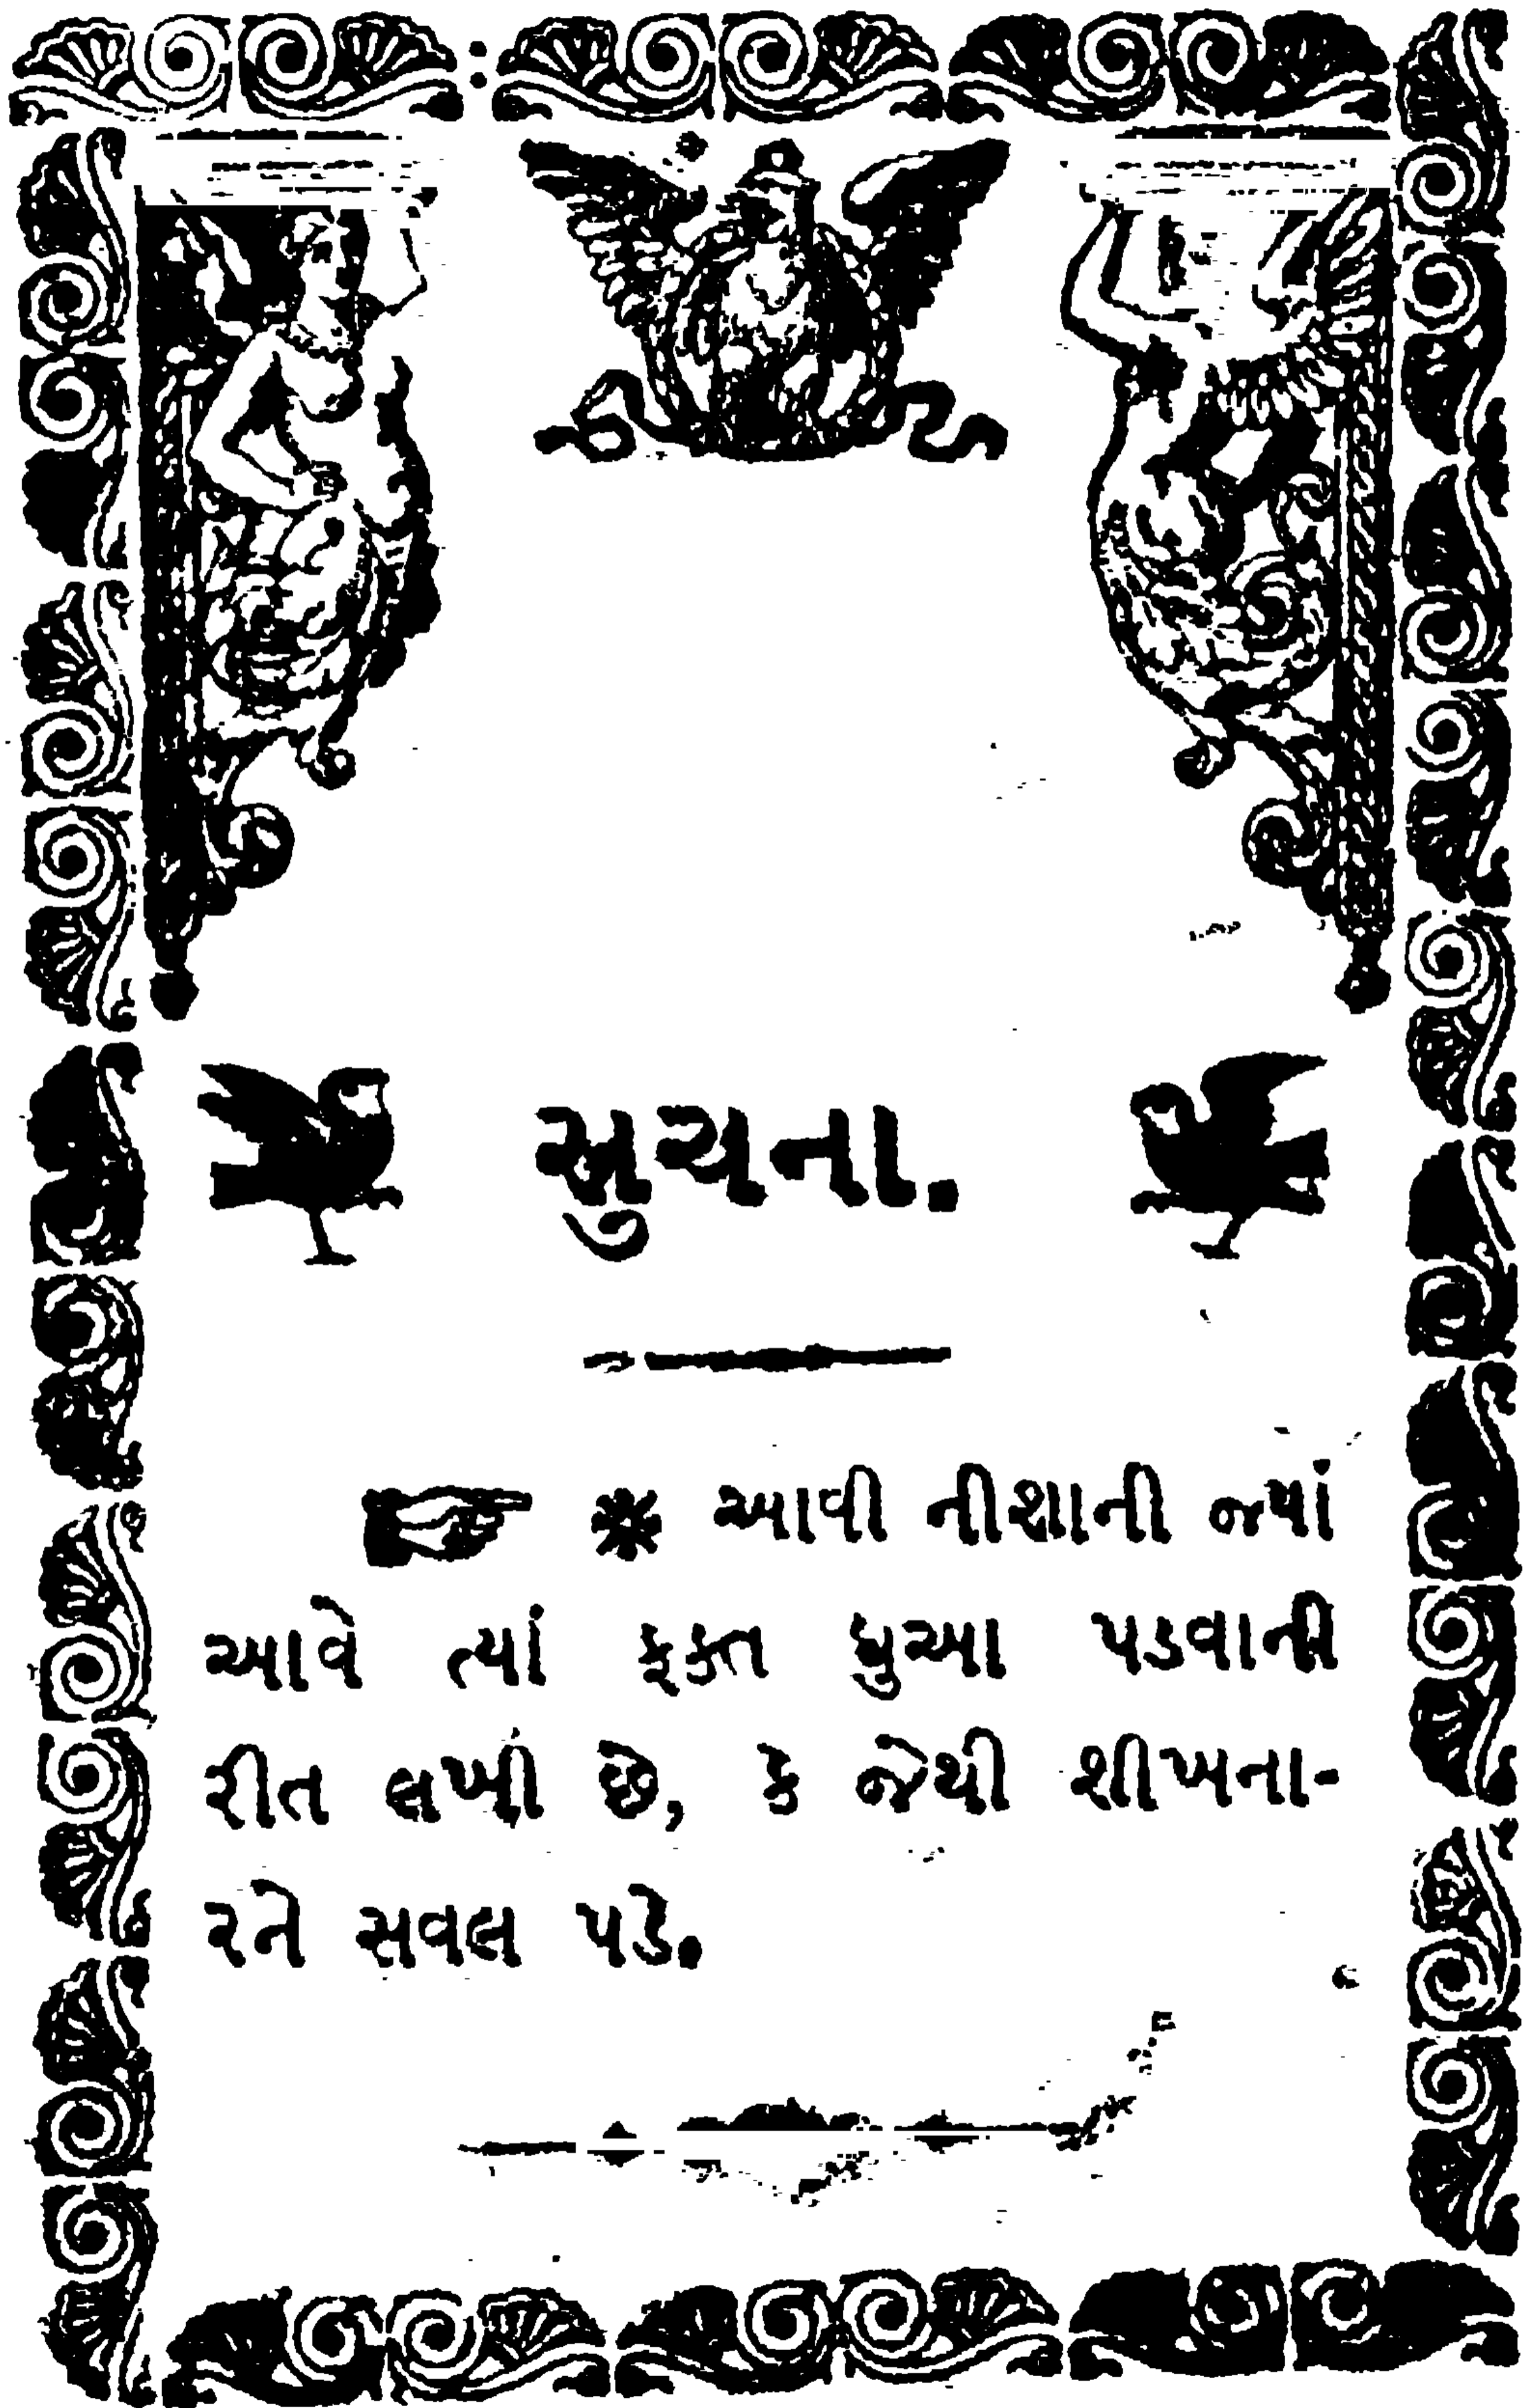 સુચના.
☞ * આવી નીશાની જ્યાં
આવે ત્યાં ફક્ત ધુઆ પડવાની
રીત લખી છે, કે જેથી શીખના-
રને સવલ પડે.